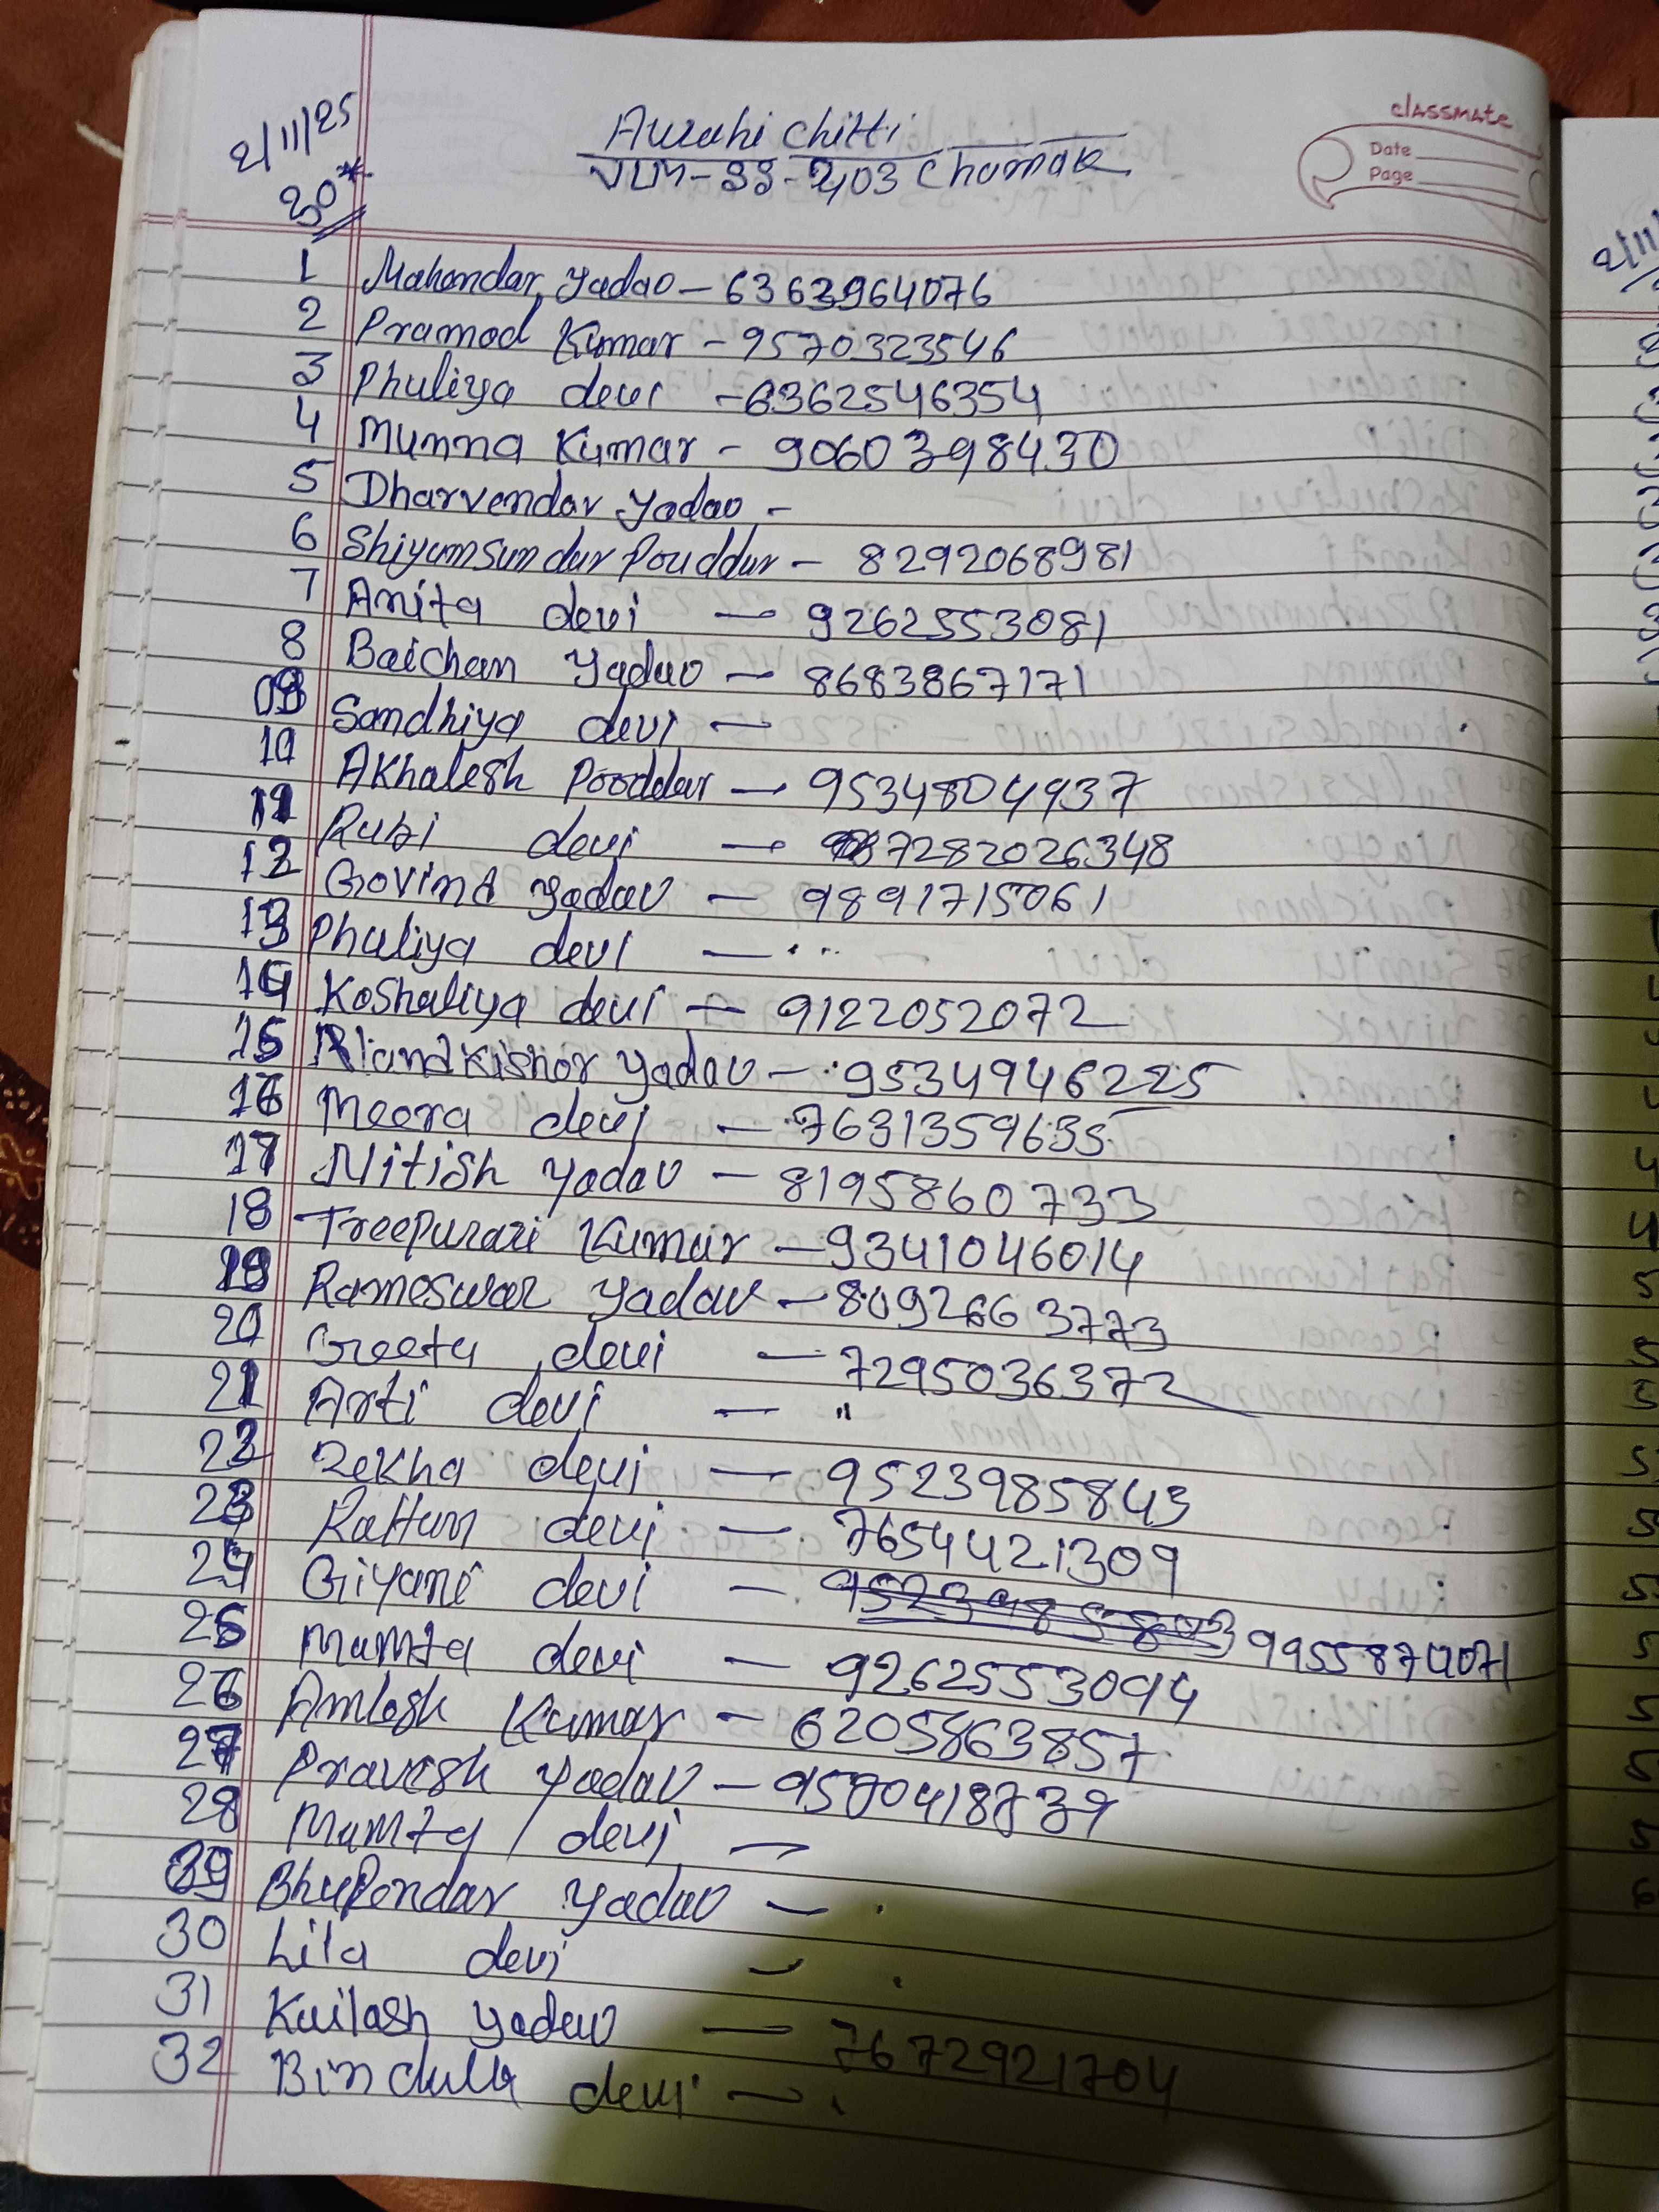 classmate
Date
Page
2/11/25
30*
Aurahi chitti
VLM-SS-403 Chamak
1 Mahendar Yadao - 6363964076
2 Pramod Kumar - 9570323546
3 Phuliya devi - 6362546354
4 Munna Kumar - 9060398430
5 Dharvendar Yadao -
6 Shiyamsundur Pouddur - 8292068981
7 Anita devi - 9262553081
8 Baichan Yadav - 8683867171
09 Sandhiya devi -
10 Akhalesh Pooddar - 9534804937
11 Rubi devi - 7282026348
12 Govind Yadav - 9891715061
13 Phuliya devi -
14 Koshaliya devi - 9122052072
15 Nandkishor Yadav - 9534946225
16 Meera devi - 7631359635
17 Nitish Yadav - 8195860733
18 Treepurari Kumar - 9341046014
19 Rameswar Yadav - 8092663773
20 Greeta devi - 7295036372
21 Arti devi - "
22 Rekha devi - 9523985843
23 Rattan devi - 7654421309
24 Giyani devi - 9955874071
25 Mamta devi - 9262553094
26 Amlesh Kumar - 6205863857
27 Pravesh Yadav - 9570418739
28 Mamta devi -
29 Bhupendar Yadav -
30 Lila devi -
31 Kailash Yadav - 7672921704
32 devi -